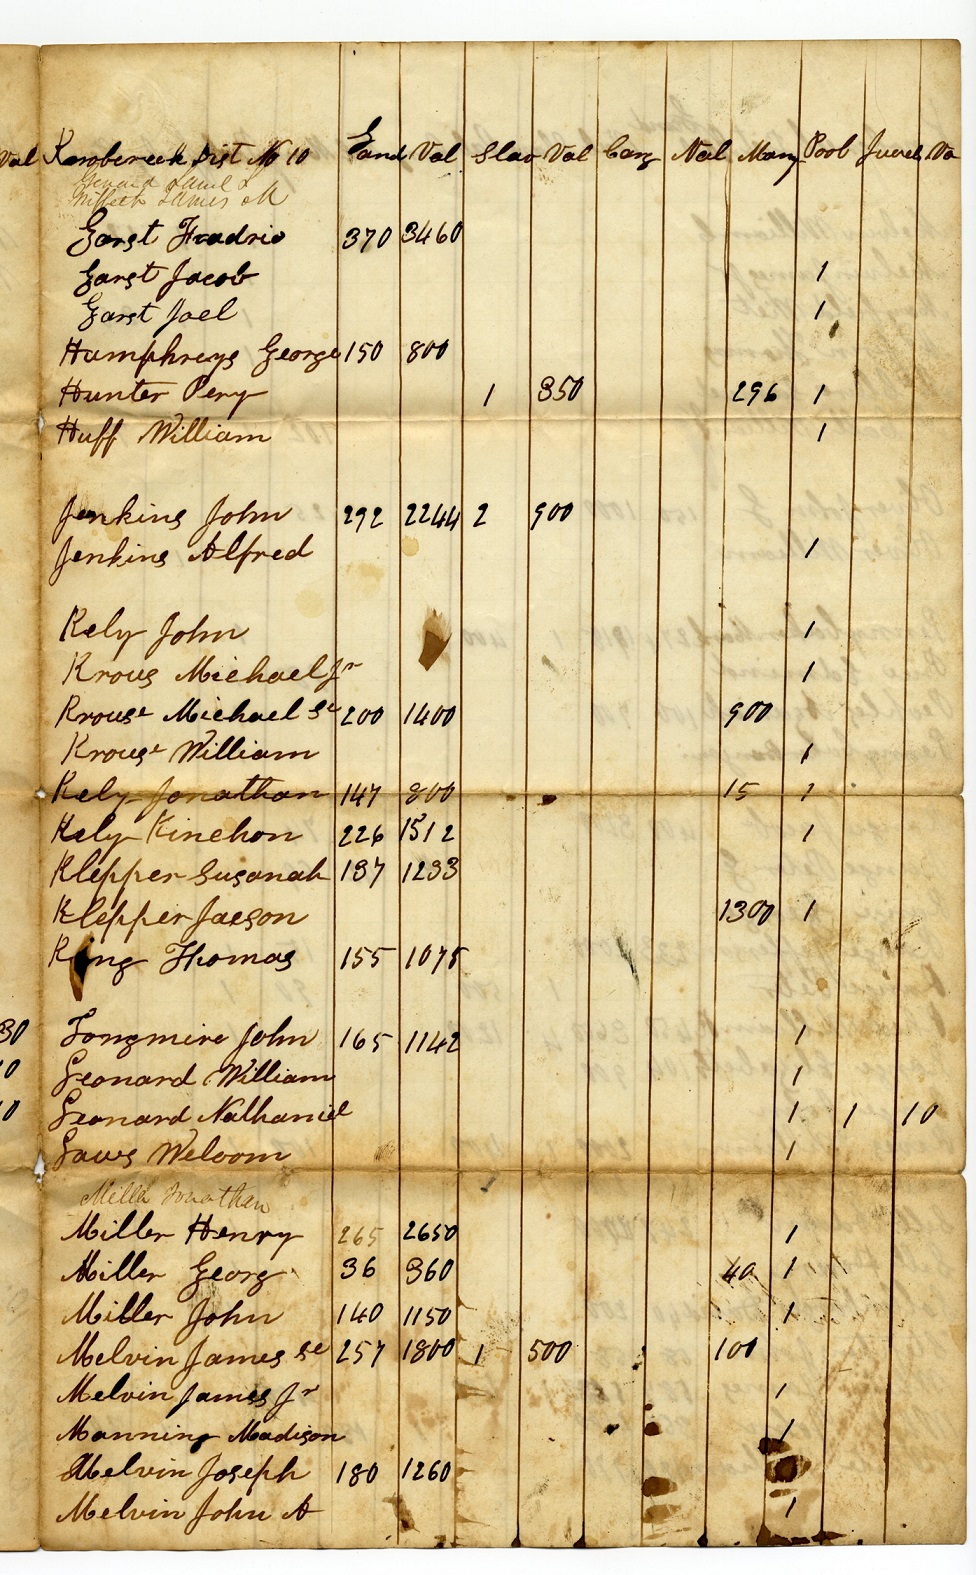 Val Kerobcreek Dist No 10 Land Val Slav Val Carg Val Mony Pool Juvel Va
James M
Garst Fradric 370 3460
Garst Jacob 1
Garst Joel 1
Humphreys George 150 800
Hunter Pery 1 350 296 1
Huff William 1
Jenkins John 292 2244 2 900
Jenkins Alfred 1
Kely John 1
Krous Michael Jr 1
Krouse Michael Se 200 1400 900
Krouse William 1
Kely Jonathan 147 800 15 1
Kely Kinchon 226 1512 1
Klepper Susanah 137 1233
Klepper Jacson 1300 1
King Thomas 155 1075
30 Longmire John 165 1142 1
0 Leonard William 1
10 Leonard Nathaniel 1 1 10
Laws Welcom 1
Miller Jonathan
Miller Henry 265 2650 1
Miller Georg 36 360 40 1
Miller John 140 1150 1
Melvin James Se 257 1800 1 500 100
Melvin James Jr 1
Manning Madison 1
Melvin Joseph 180 1260
Melvin John A 1